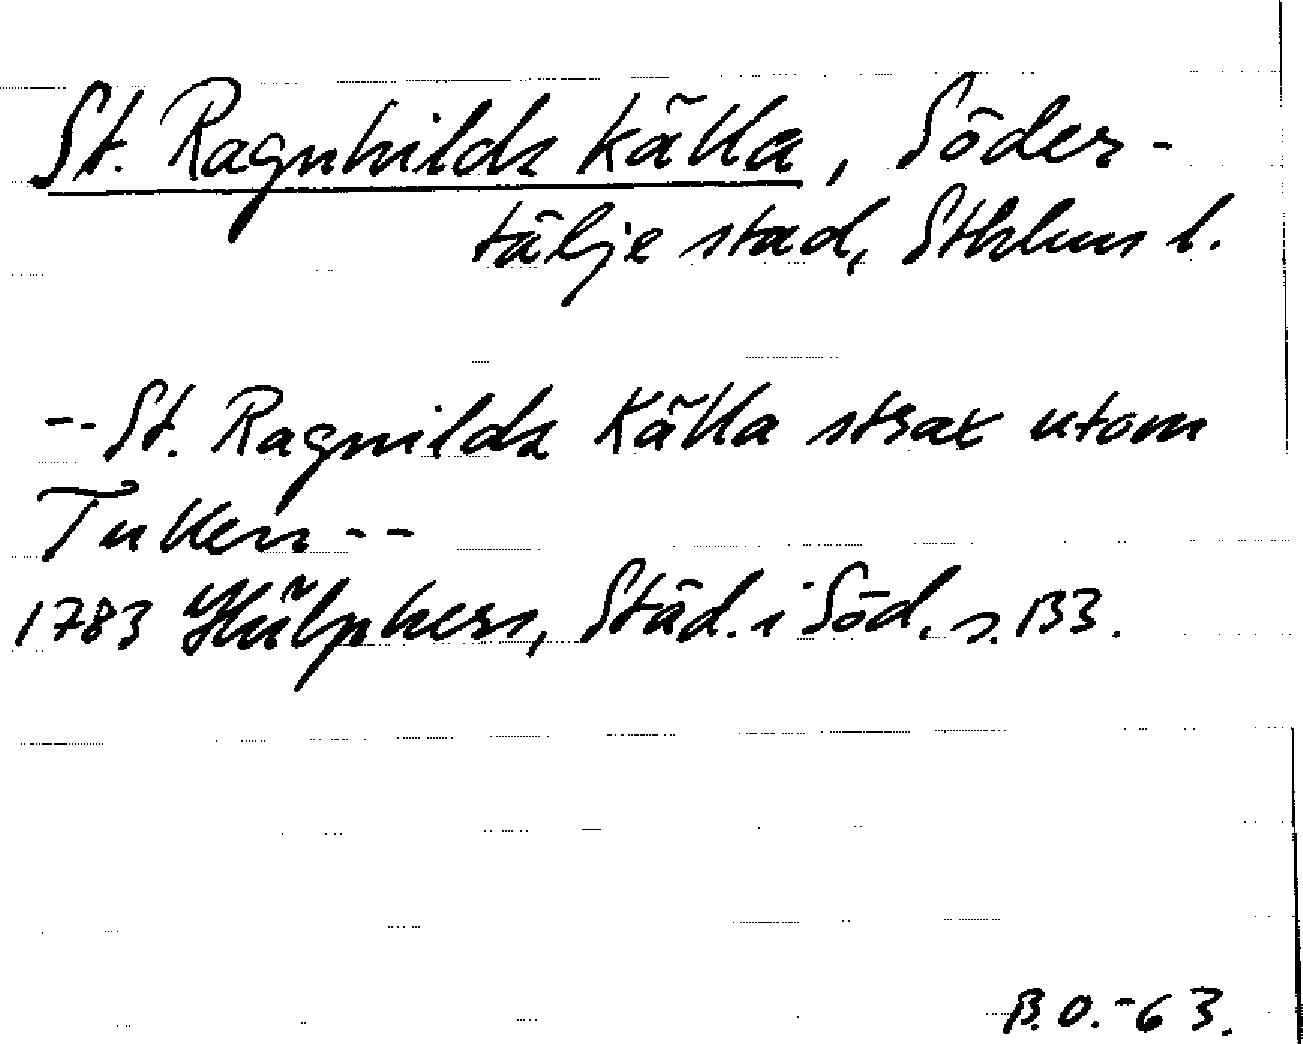 St. Ragnhilds källa, Söder-
tälje stad, Sthlms l.
-- St. Ragnilds Källa strax utom
Tullen --
1783 Hülphers, Städ. i Söd. s. 133.
B.O. -63.